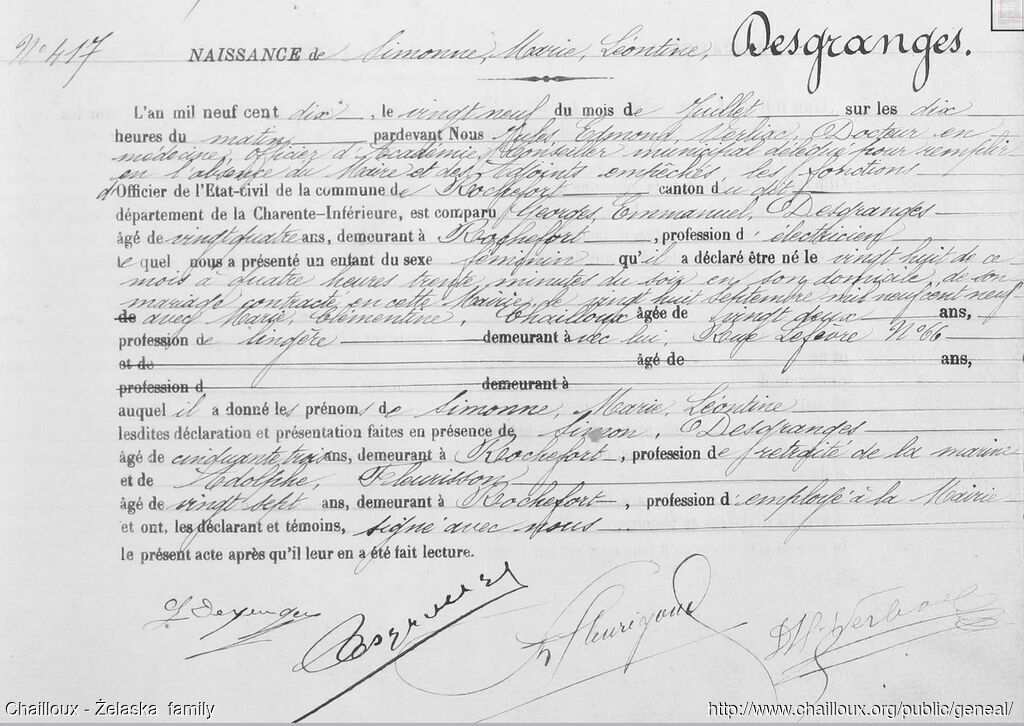 N° 417
NAISSANCE de Simonne, Marie, Léontine, Desgranges.
L'an mil neuf cent dix, le vingt neuf du mois de Juillet sur les dix
heures du matin pardevant Nous Jules, Edmond, Docteur en
médecine, officier d'Académie, Conseiller municipal délégué pour remplir
en l'absence du Maire et des Adjoints empêchés, les fonctions
d'Officier de l'Etat-Civil de la commune de Rochefort canton du dit
département de la Charente-Inférieure, est comparu Georges, Emmanuel, Desgranges
âgé de vingt quatre ans, demeurant à Rochefort, profession d'électricien
le quel nous a présenté un enfant du sexe féminin qu'il a déclaré être né le vingt huit de ce
mois à quatre heures trente minutes du soir en son domicile, de son
mariage contracté en cette Mairie, le vingt huit septembre mil neuf cent neuf
de avec Marie, Clémentine, Chailloux âgée de vingt deux ans,
profession de lingère demeurant avec lui, Rue Lefèvre N° 66
et de âgé de ans,
profession d demeurant à
auquel il a donné les prénoms de Simonne, Marie, Léontine
lesdites déclaration et présentation faites en présence de Simon, Desgranges
âgé de cinquante trois ans, demeurant à Rochefort, profession de retraité de la marine
et de Adolphe, Fleurisson
âgé de vingt sept ans, demeurant à Rochefort, profession d'employé à la Mairie
et ont, les déclarant et témoins, signé avec nous
le présent acte après qu'il leur en a été fait lecture.
Chailloux - Żelaska family
http://www.chailloux.org/public/geneal/